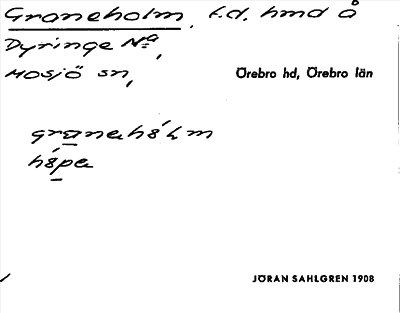 Graneholm, f.d. hmd å
Dyringe Nᵃ,
Mosjö sn, Örebro hd, Örebro län
granahǻlm
hǻpa
JÖRAN SAHLGREN 1908